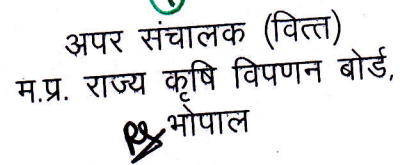 अपर संचालक (वित्त)
म.प्र. राज्य कृषि विपणन बोर्ड,
भोपाल